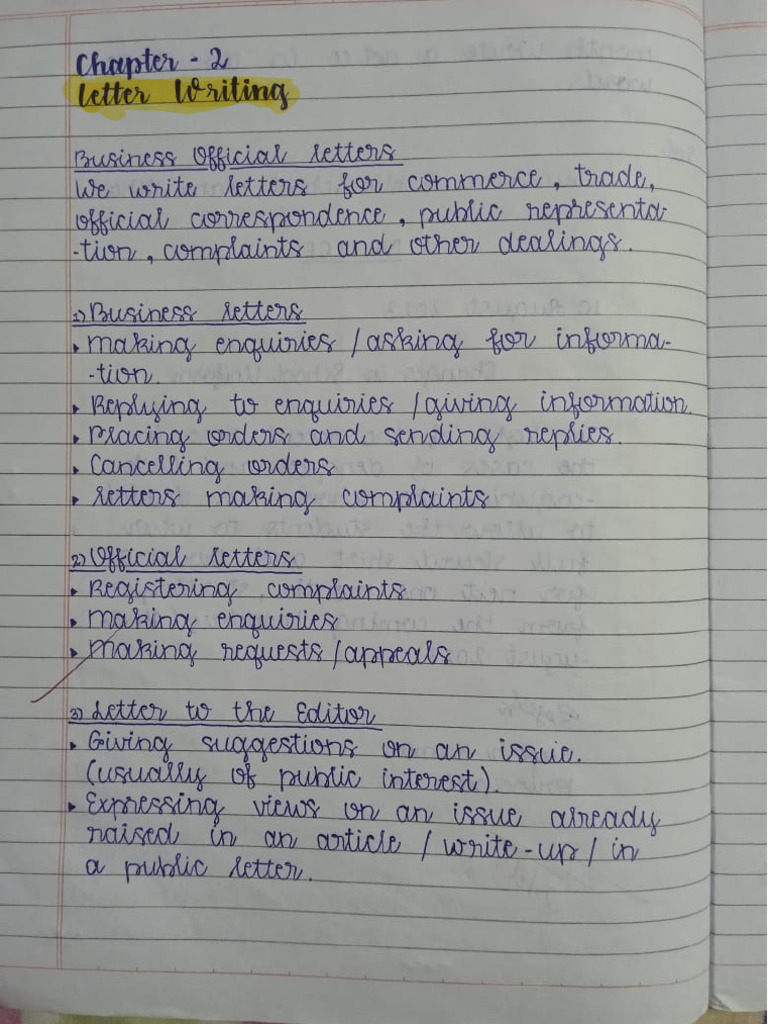 Chapter - 2
Letter Writing
Business Official letters
We write letters for commerce, trade,
official correspondence, public representa-
-tion, complaints and other dealings.
1) Business letters
• Making enquiries / asking for informa-
-tion.
• Replying to enquiries / giving information.
• Placing orders and sending replies.
• Cancelling orders
• Letters making complaints
2) Official letters
• Registering complaints
• Making enquiries
• Making requests / appeals
3) Letter to the Editor
• Giving suggestions on an issue.
(usually of public interest).
• Expressing views on an issue already
raised in an article / write-up / in
a public letter.